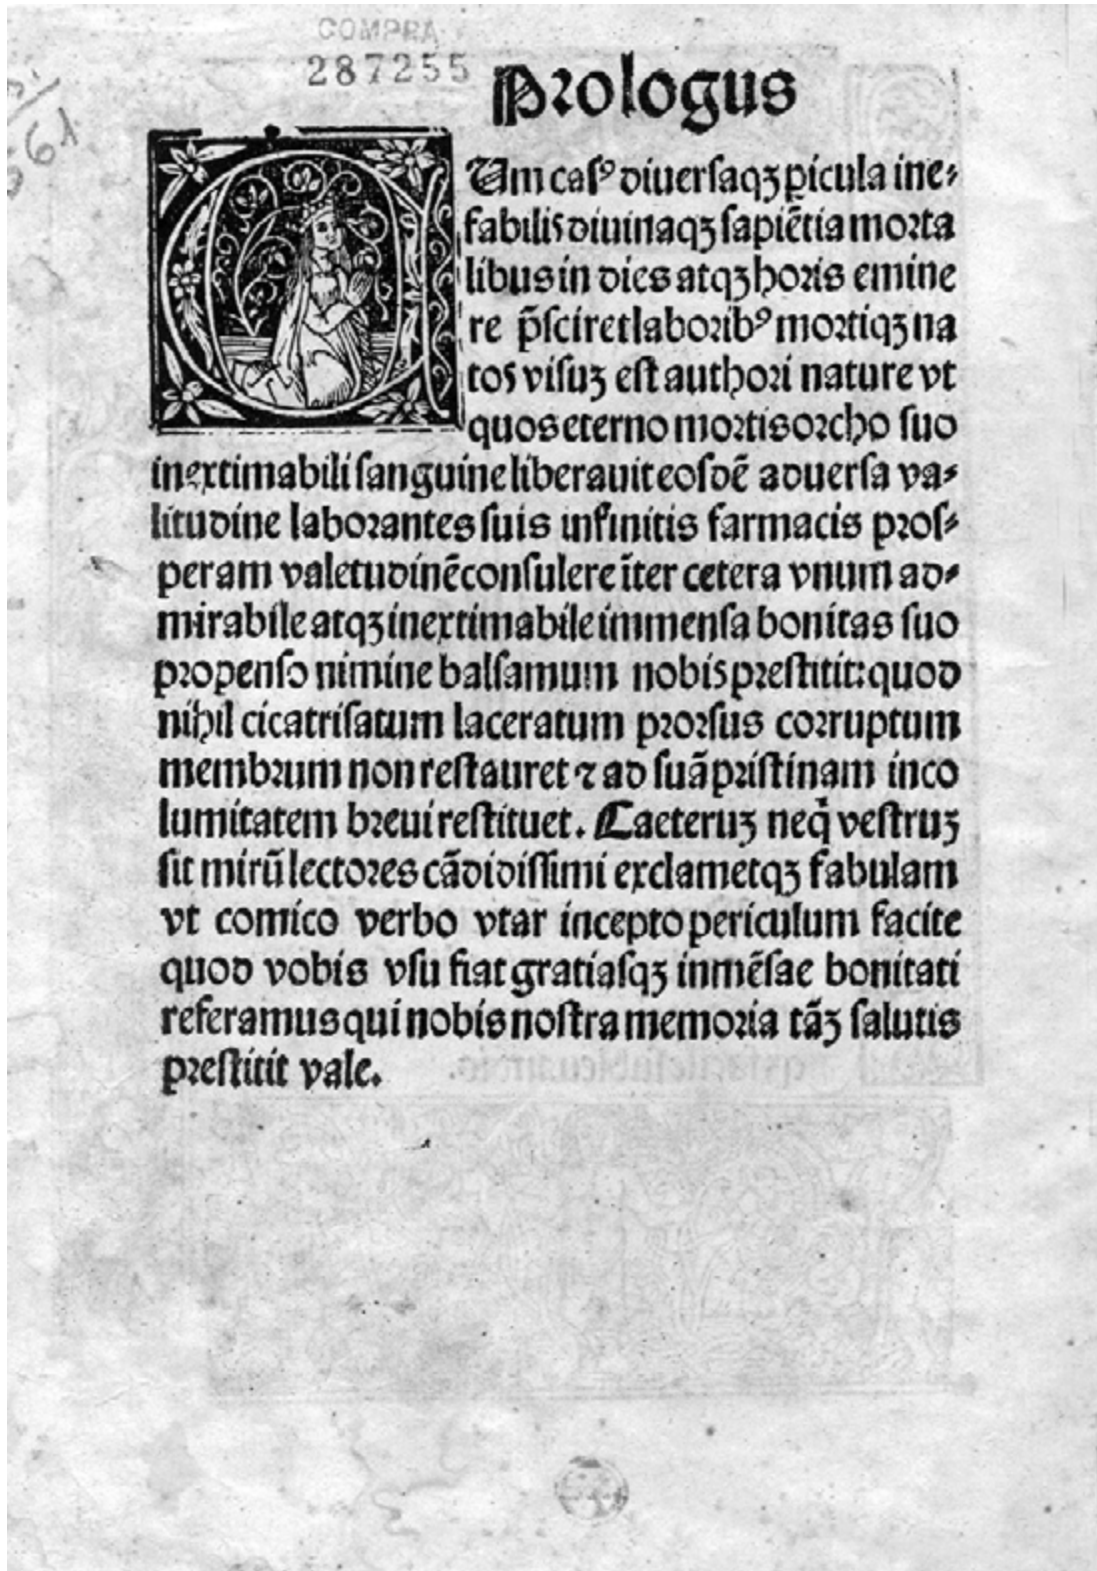 COMPRA
287255
Prologus
CUm casꝰ diuersaqꝫ ꝑicula ine⸗
fabilis diuinaqꝫ sapiẽtia morta
libus in dies atqꝫ horis emine
re p̃sciret laboribꝰ mortiqꝫ na
tos visuꝫ est authori nature vt
quos eterno mortis orcho suo
inextimabili sanguine liberauit eosdẽ aduersa va⸗
litudine laborantes suis infinitis farmacis pros⸗
peram valetudinẽ consulere ĩter cetera vnum ad⸗
mirabile atqꝫ inextimabile immensa bonitas suo
propenso nimine balsamum nobis prestitit: quod
nihil cicatrisatum laceratum prorsus corruptum
membrum non restauret ⁊ ad suã pristinam inco
lumitatem breui restituet. Caeteruꝫ neq̃ vestruꝫ
sit mirũ lectores cãdidissimi exclametqꝫ fabulam
vt comico verbo vtar incepto periculum facite
quod vobis vsu fiat gratiasqꝫ inmẽsae bonitati
referamus qui nobis nostra memoria tãꝫ salutis
prestitit vale.